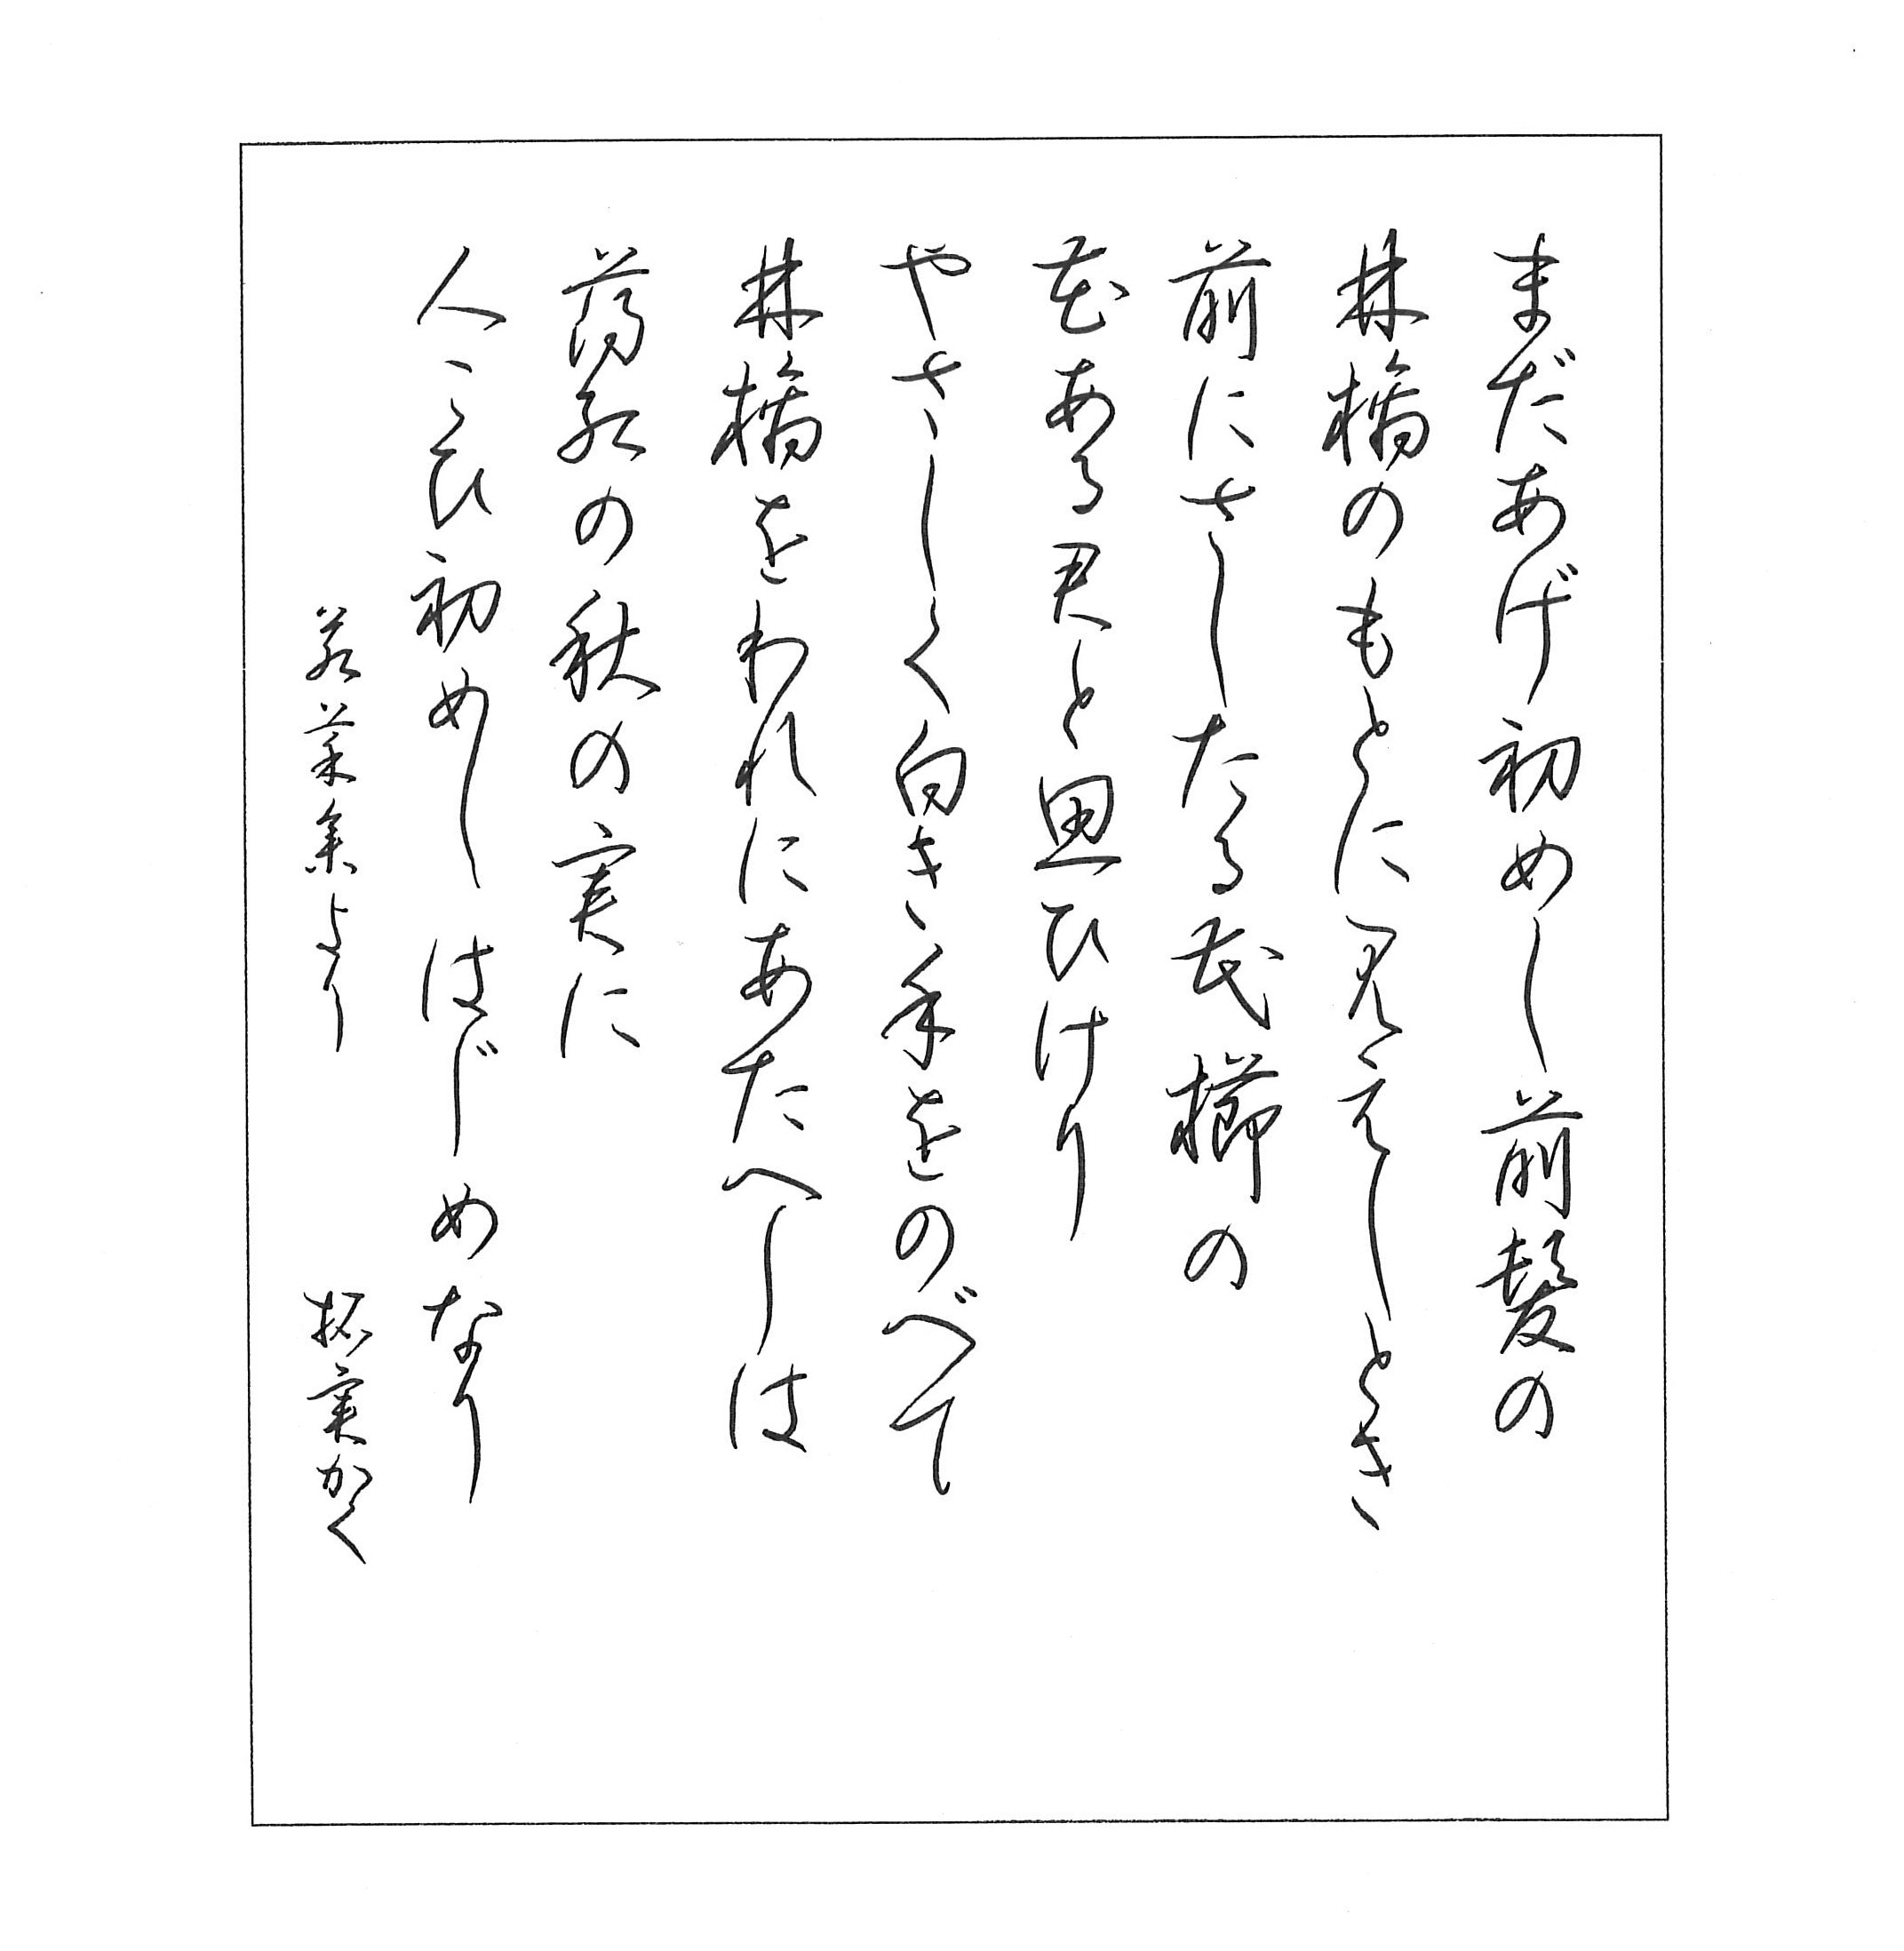 まだあげ初めし前髪の
林檎のもとに見えしとき
前にさしたる花櫛の
花ある君と思ひけり
やさしく白き手をのべて
林檎をわれにあたへしは
薄紅の秋の実に
人こひ初めしはじめなり
若菜集より かく